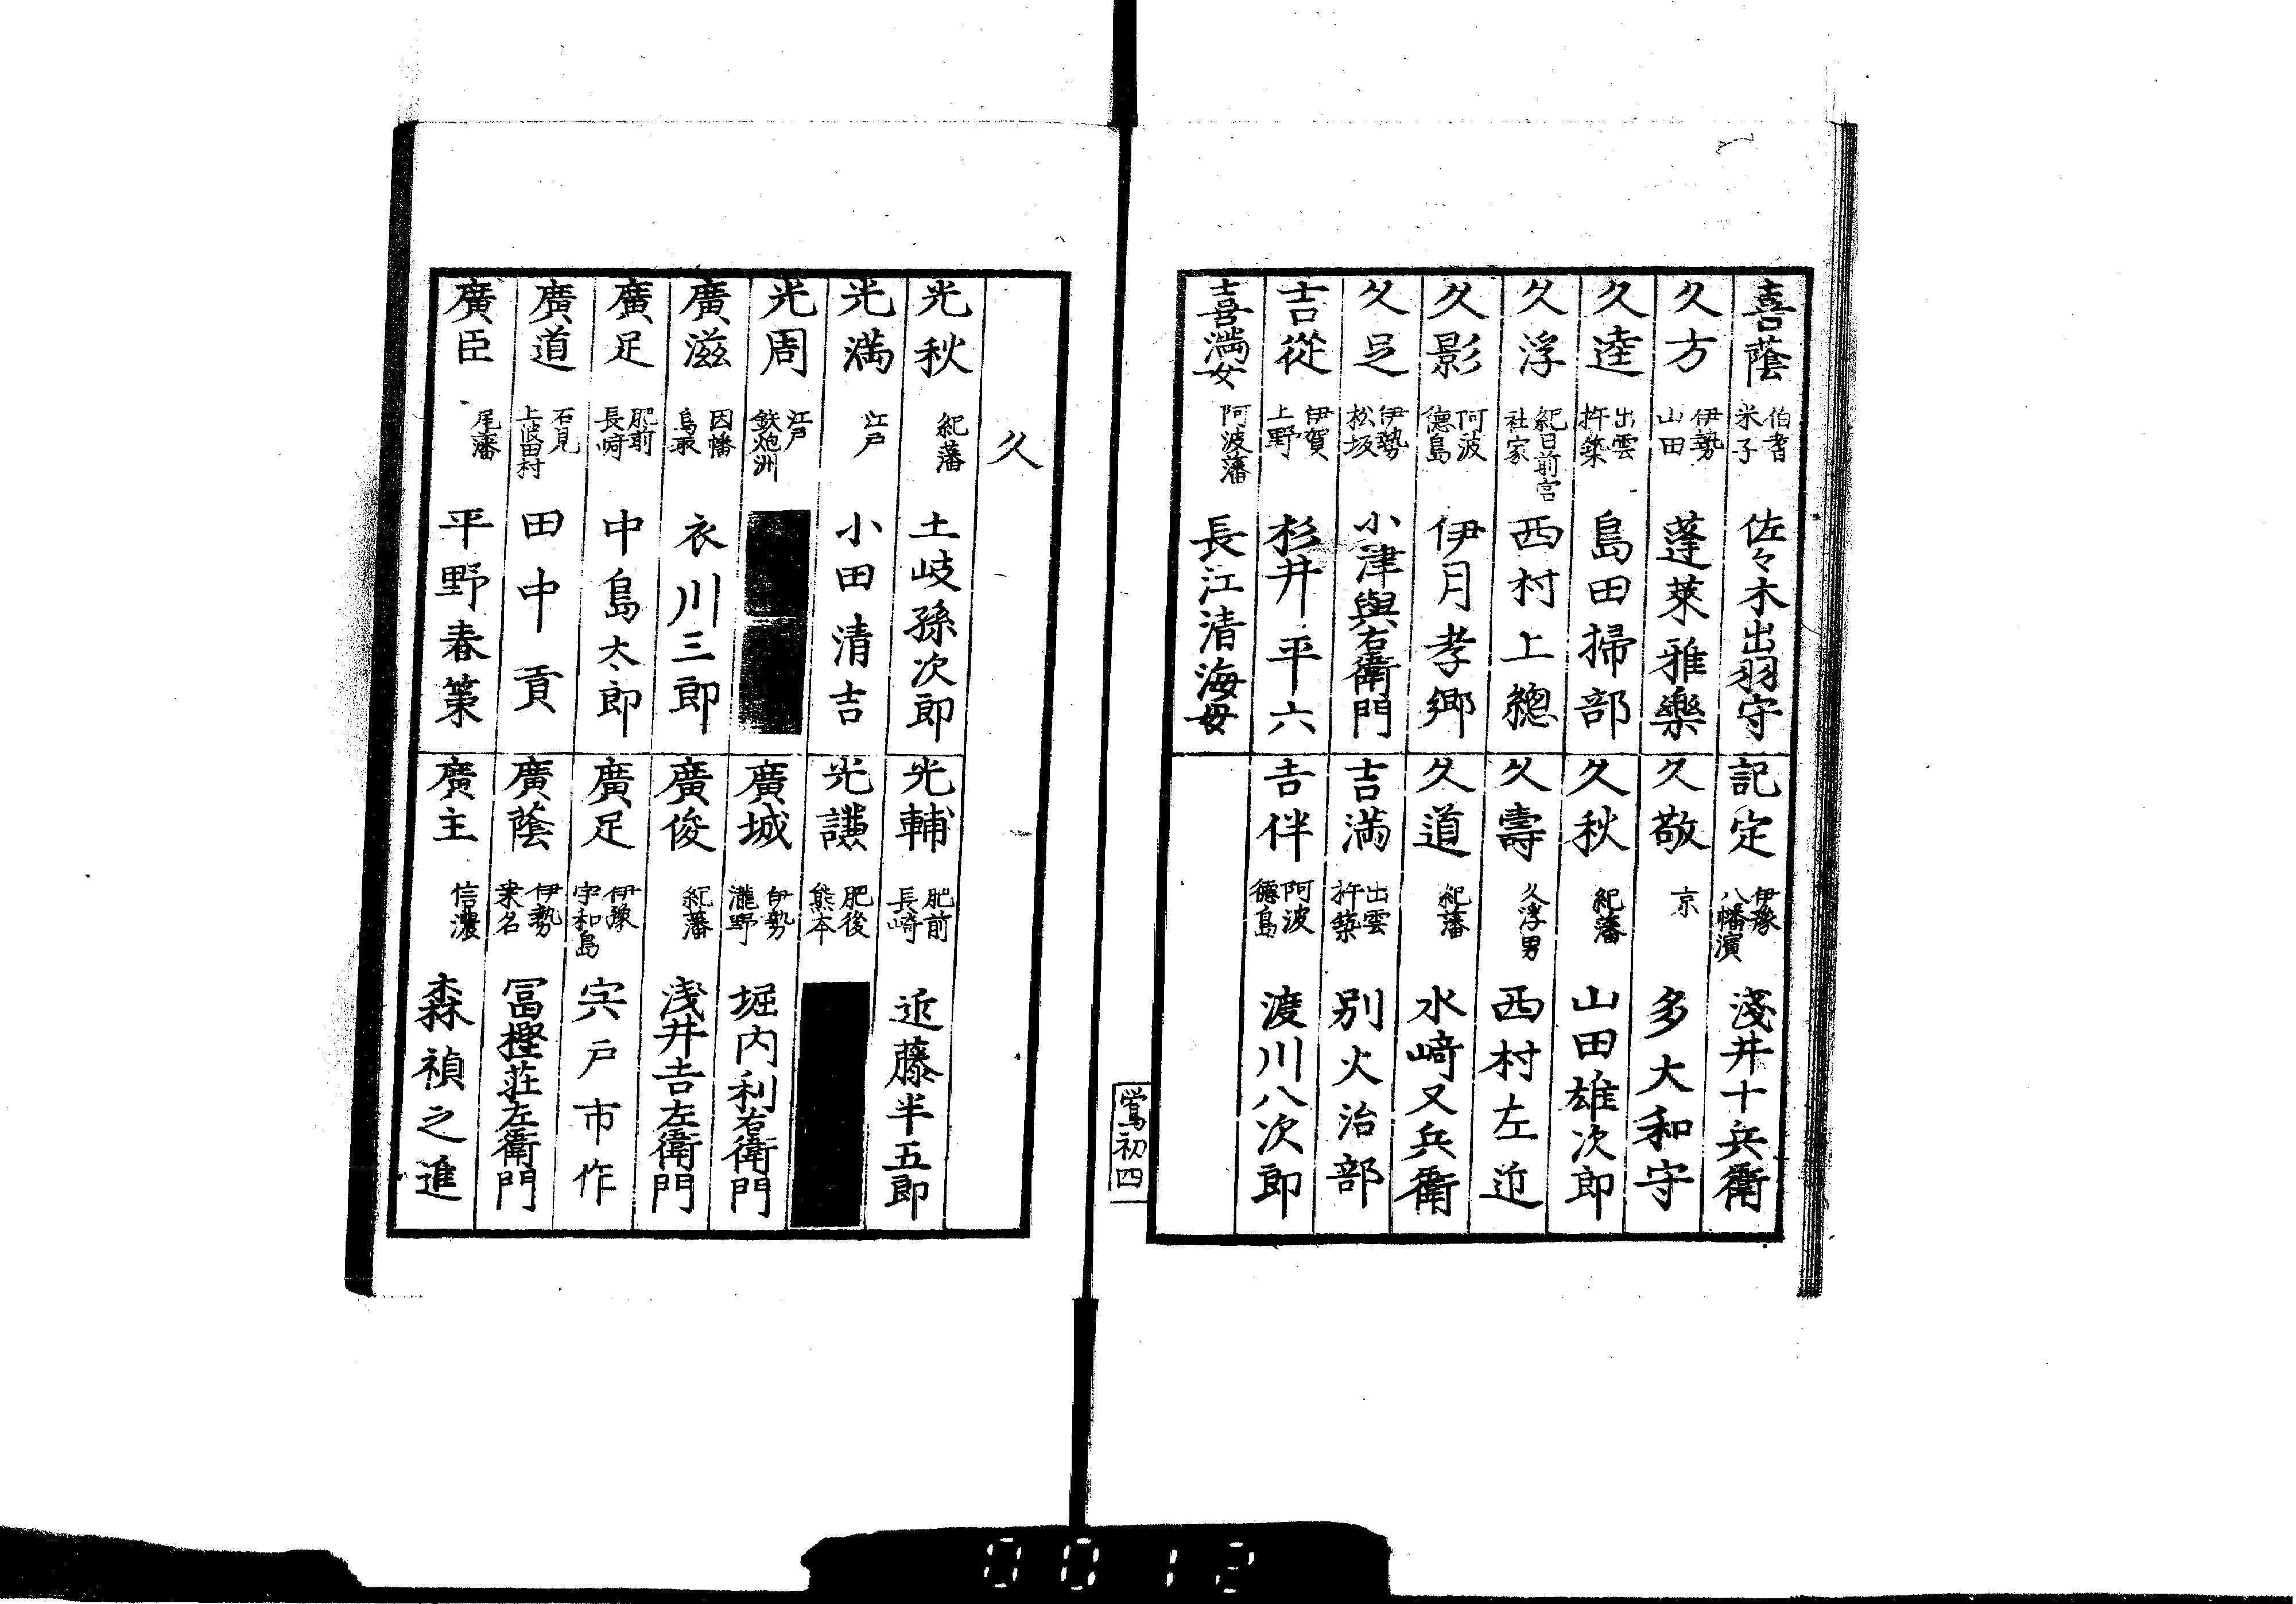 喜蔭 伯耆米子 佐々木出羽守
記定 伊豫八幡濱 淺井十兵衛
久方 伊勢山田 蓬萊雅樂
久敬 京 多大和守
久逵 出雲杵築 島田掃部
久秋 紀藩 山田雄次郎
久浮 紀日前宮社家 西村上總
久壽 久浮男 西村左近
久影 阿波德島 伊月孝鄉
久道 紀藩 水﨑又兵衛
久足 伊勢松坂 小津與右衛門
吉満 出雲杵築 別火治部
吉從 伊賀上野 杉井平六
吉伴 阿波德島 渡川八次郎
喜満女 阿波藩 長江清海母
鴬初四
久
光秋 紀藩 土岐孫次郎
光輔 肥前長崎 近藤半五郎
光満 江戸 小田清吉
光謙 肥後熊本
光周 江戸鉄炮洲
廣城 伊勢瀧野 堀内利右衛門
廣滋 因幡鳥取 衣川三郎
廣俊 紀藩 浅井吉左衛門
廣足 肥前長崎 中島太郎
廣足 伊豫宇和島 宍戸市作
廣道 石見上 田村 田中貢
廣蔭 伊勢桒名 冨樫荘左衛門
廣臣 尾藩 平野春策
廣主 信濃 森禎之進
0012